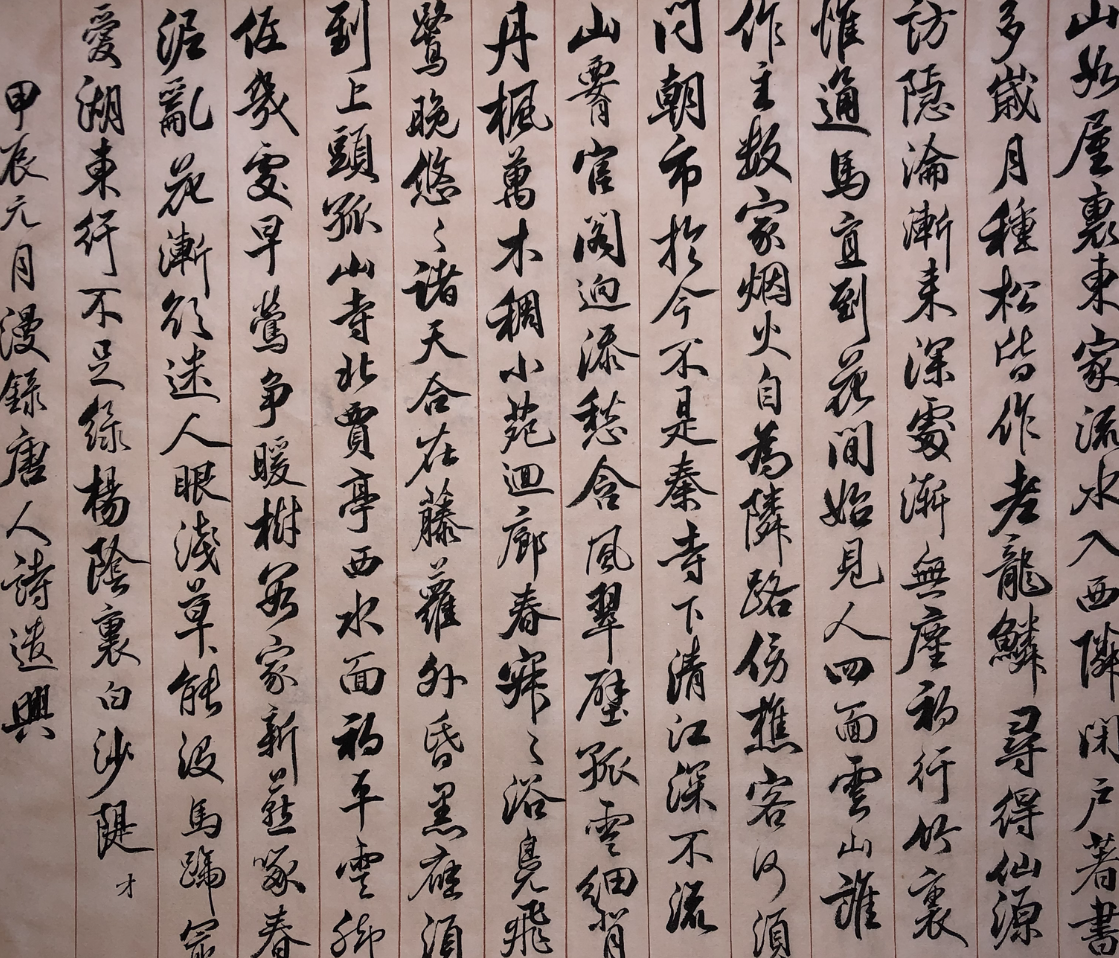 山如屋裏東家流水入西隣閉户著書
多歲月種松皆作老龍鱗尋得仙源
訪隱淪漸来深處漸無塵初行竹裏
惟通馬直到花間始見人四面雲山誰
作主数家烟火自為隣路傍樵客何須
問朝市於今不是秦寺下清江深不流
山腰官阁迥添愁含風翠壁孤雲細背
丹楓萬木稠小苑迴廊春寂〻浴鳧飛
鷺晚悠〻諸天合在藤蘿外昏黑應須
到上頭孤山寺北賈亭西水面初平雲脚
低幾處早鶯爭暖樹誰家新燕啄春
泥亂花漸欲迷人眼淺草能没馬蹄最
愛湖東行不足綠楊陰裏白沙隄
才
甲辰元月漫録唐人詩遣興